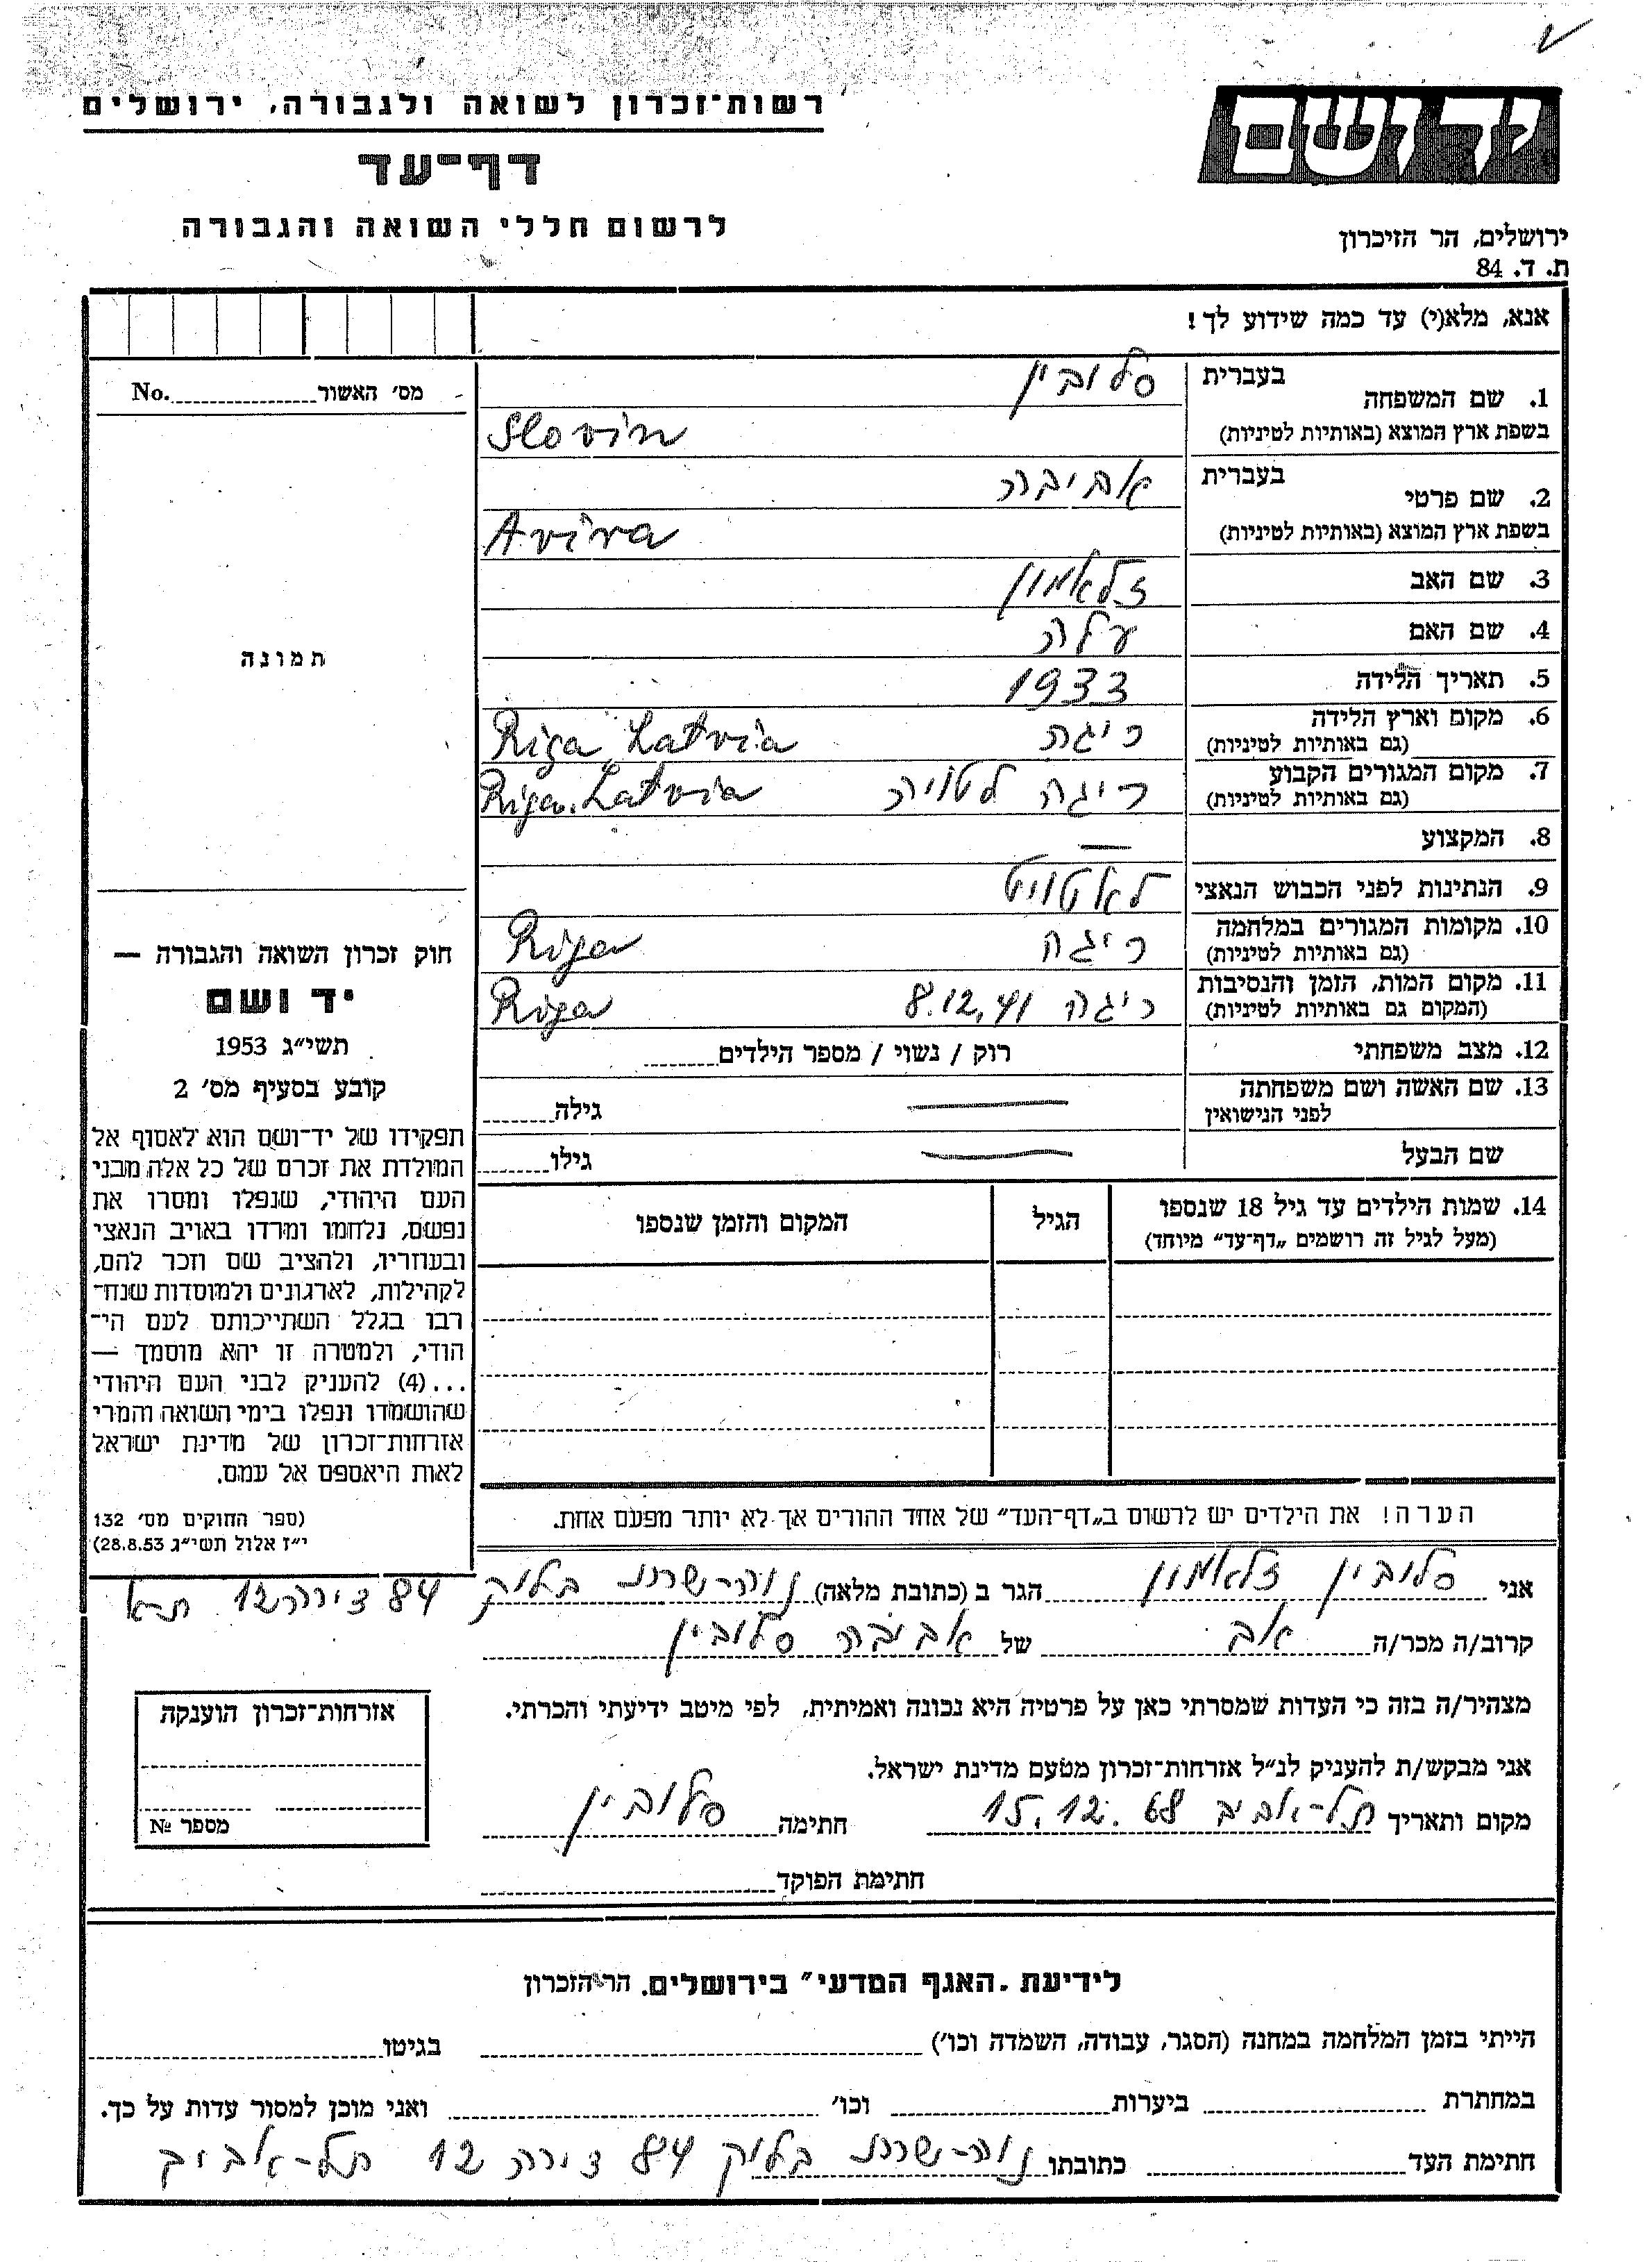 רשות־זכרון לשואה ולגבורה, ירושלים
דף־עד
לרשום חללי השואה והגבורה
יד ושם
ירושלים, הר הזיכרון
ת. ד. 84
אנא, מלא(י) עד כמה שידוע לך !
1. שם המשפחה
בעברית סלובין
בשפת ארץ המוצא (באותיות לטיניות) Slovin
2. שם פרטי
בעברית אביבה
בשפת ארץ המוצא (באותיות לטיניות) Aviva
3. שם האב זלאמון
4. שם האם עלה
5. תאריך הלידה 1933
6. מקום וארץ הלידה ריגה Riga Latvia
(גם באותיות לטיניות)
7. מקום המגורים הקבוע ריגה לטויה Riga. Latvia
(גם באותיות לטיניות)
8. המקצוע —
9. הנתינות לפני הכבוש הנאצי לאטויט
10. מקומות המגורים במלחמה ריגה Riga
(גם באותיות לטיניות)
11. מקום המות, הזמן והנסיבות ריגה 8.12.41 Riga
(המקום גם באותיות לטיניות)
12. מצב משפחתי רוק / נשוי / מספר הילדים
13. שם האשה ושם משפחתה — גילה
לפני הנישואין
שם הבעל — גילו
14. שמות הילדים עד גיל 18 שנספו הגיל המקום והזמן שנספו
(מעל לגיל זה רושמים „דף־עד” מיוחד)
הערה! את הילדים יש לרשום ב„דף־העד” של אחד ההורים אך לא יותר מפעם אחת.
מס׳ האשור No.
תמונה
חוק זכרון השואה והגבורה —
יד ושם
תשי״ג 1953
קובע בסעיף מס׳ 2
תפקידו של יד־ושם הוא לאסוף אל
המולדת את זכרם של כל אלה מבני
העם היהודי, שנפלו ומסרו את
נפשם, נלחמו ומרדו באויב הנאצי
ובעוזריו, ולהציב שם וזכר להם,
לקהילות, לארגונים ולמוסדות שנח־
רבו בגלל השתייכותם לעם הי־
הודי, ולמטרה זו יהא מוסמך —
...(4) להעניק לבני העם היהודי
שהושמדו ונפלו בימי השואה והמרי
אזרחות־זכרון של מדינת ישראל
לאות היאספם אל עמם.
(ספר החוקים מס׳ 132
י״ז אלול תשי״ג 28.8.53)
אני סלובין זלאמון הגר ב (כתובת מלאה) נוה-שרת בלוק 84 דירה 12 ת-א
קרוב/ה מכר/ה אב של אביבה סלובין
מצהיר/ה בזה כי העדות שמסרתי כאן על פרטיה היא נכונה ואמיתית, לפי מיטב ידיעתי והכרתי.
אני מבקש/ת להעניק לנ״ל אזרחות־זכרון מטעם מדינת ישראל.
מקום ותאריך תל-אביב 15.12.68 חתימה סלובין
חתימת הפוקד
אזרחות־זכרון הוענקה
מספר №
לידיעת „האגף המדעי” בירושלים. הר־הזכרון
הייתי בזמן המלחמה במחנה (הסגר, עבודה, השמדה וכו׳) בגיטו
במחתרת ביערות וכו׳ ואני מוכן למסור עדות על כך.
חתימת העד כתובתו נוה-שרת בלוק 84 דירה 12 תל-אביב